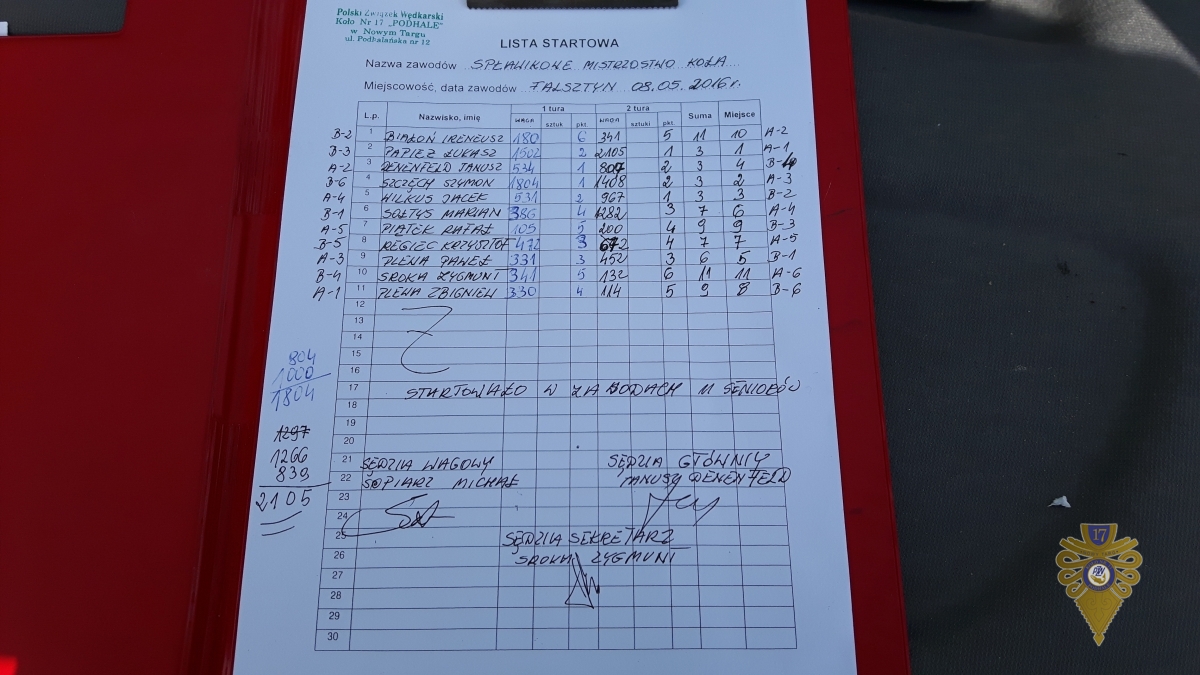 Polski Związek Wędkarski
Koło Nr 17 „PODHALE"
w Nowym Targu
ul. Podhalańska nr 12
LISTA STARTOWA
Nazwa zawodów SPŁAWIKOWE MISTRZOSTWO KOŁA
Miejscowość, data zawodów FALSZTYN 08.05.2016r.
L.p. Nazwisko, imię 1 tura 2 tura Suma Miejsce
WAGA sztuk pkt. WAGA sztuki pkt.
B-2 1 BIAŁOŃ IRENEUSZ 180 6 341 5 11 10 A-2
B-3 2 PAPIEŻ ŁUKASZ 1502 2 2105 1 3 1 A-1
A-2 3 DENENFELD JANUSZ 534 1 807 2 3 4 B-4
B-6 4 SZCZĘCH SZYMON 1804 1 1408 2 3 2 A-3
A-4 5 WILKUS JACEK 531 2 967 1 3 3 B-2
B-1 6 SOŁTYS MARIAN 386 4 1282 3 7 6 A-4
A-5 7 PIĄTEK RAFAŁ 105 5 200 4 9 9 B-3
B-5 8 REGIEC KRZYSZTOF 472 3 672 4 7 7 A-5
A-3 9 PLEWA PAWEŁ 331 3 452 3 6 5 B-1
B-4 10 SROKA ZYGMUNT 341 5 132 6 11 11 A-6
A-1 11 PLEWA ZBIGNIEW 330 4 114 5 9 8 B-6
12
13
14
15
804
16
1000
17 STARTOWAŁO W ZAWODACH 11 SENIORÓW
1804
18
19
1297
20
1266
21 SĘDZIA WAGOWY SĘDZIA GŁÓWNY
839
22 SOPIARZ MICHAŁ JANUSZ DENENFELD
2105
23
24
25 SĘDZIA SEKRETARZ
26 SROKA ZYGMUNT
27
28
29
30
17
PZW